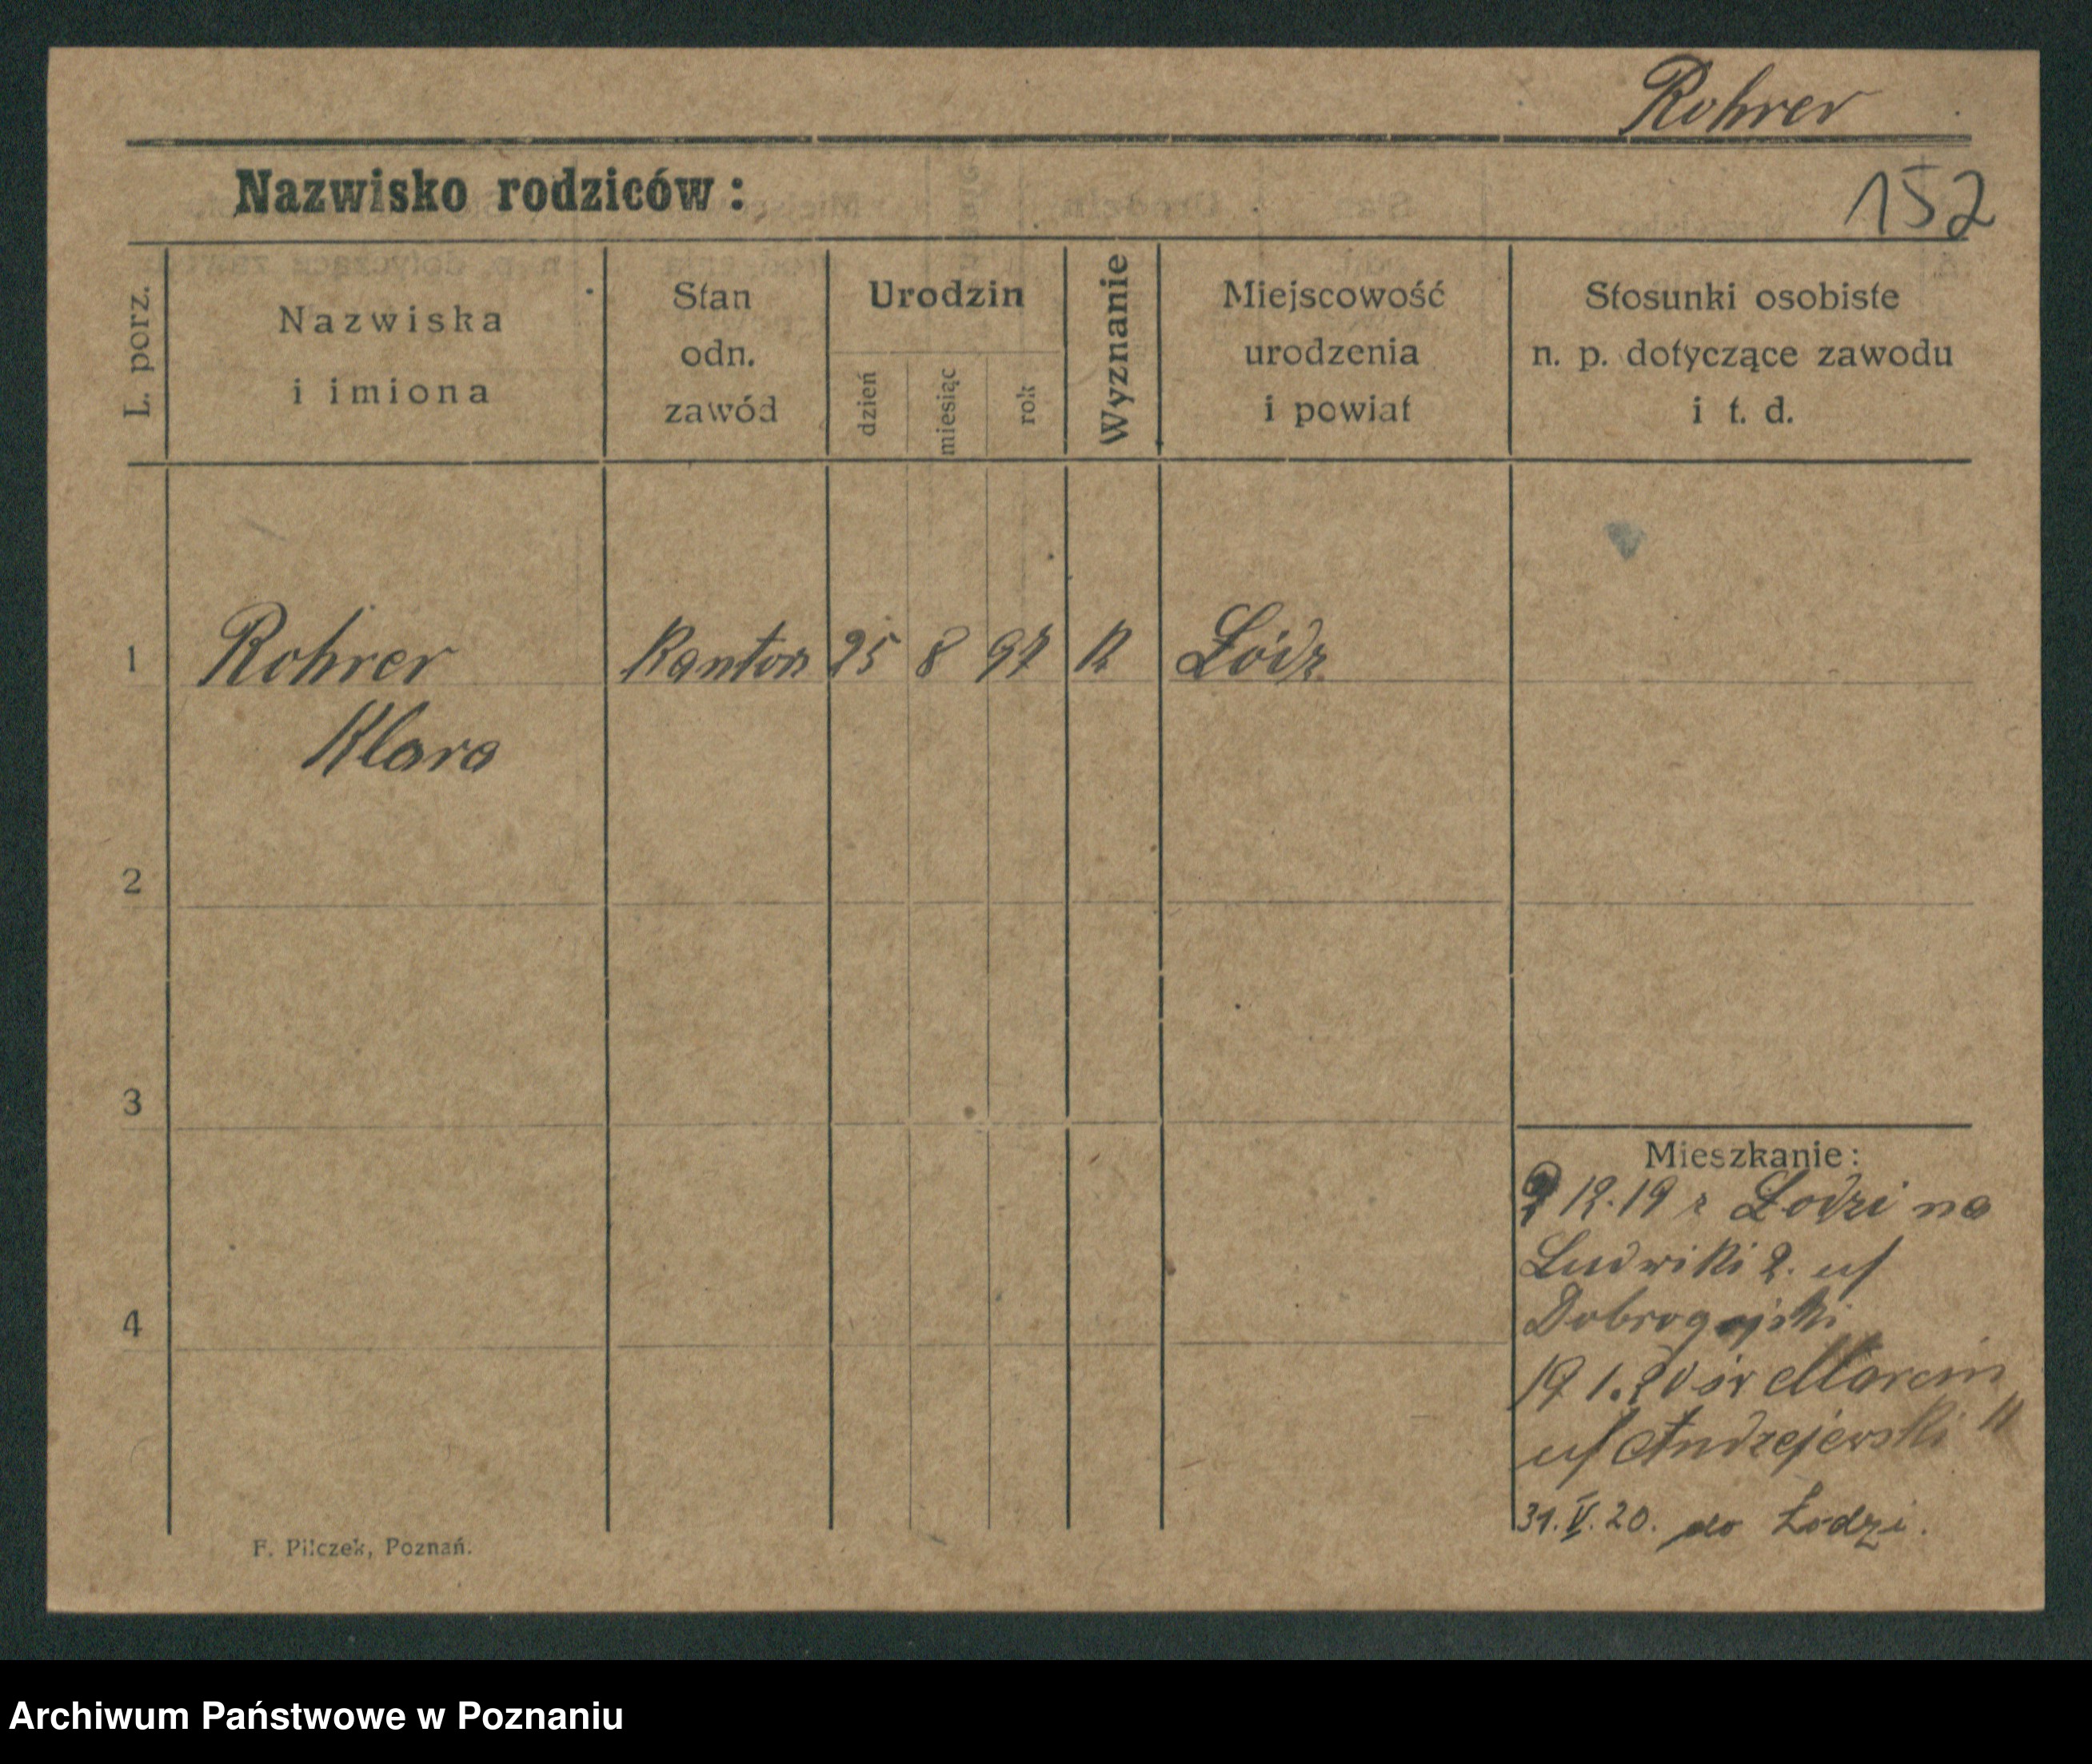 Rohrer
Nazwisko rodziców:
152
L. porz.
Nazwiska
i imiona
Stan
odn.
zawód
Urodzin
dzień
miesiąc
rok
Wyznanie
Miejscowość
urodzenia
i powiat
Stosunki osobiste
n. p. dotyczące zawodu
i t. d.
1 Rohrer Kantor 25 8 97 K Łódz
Klara
2
3
4
Mieszkanie:
2 12.19 z Łodzi na
Ludwiki 2. u/
Dobrogojski
19 1.20 św Marcin
u/ Andrzejewski 11
31.V.20. do Łodzi.
F. Pilczek, Poznań.
Archiwum Państwowe w Poznaniu